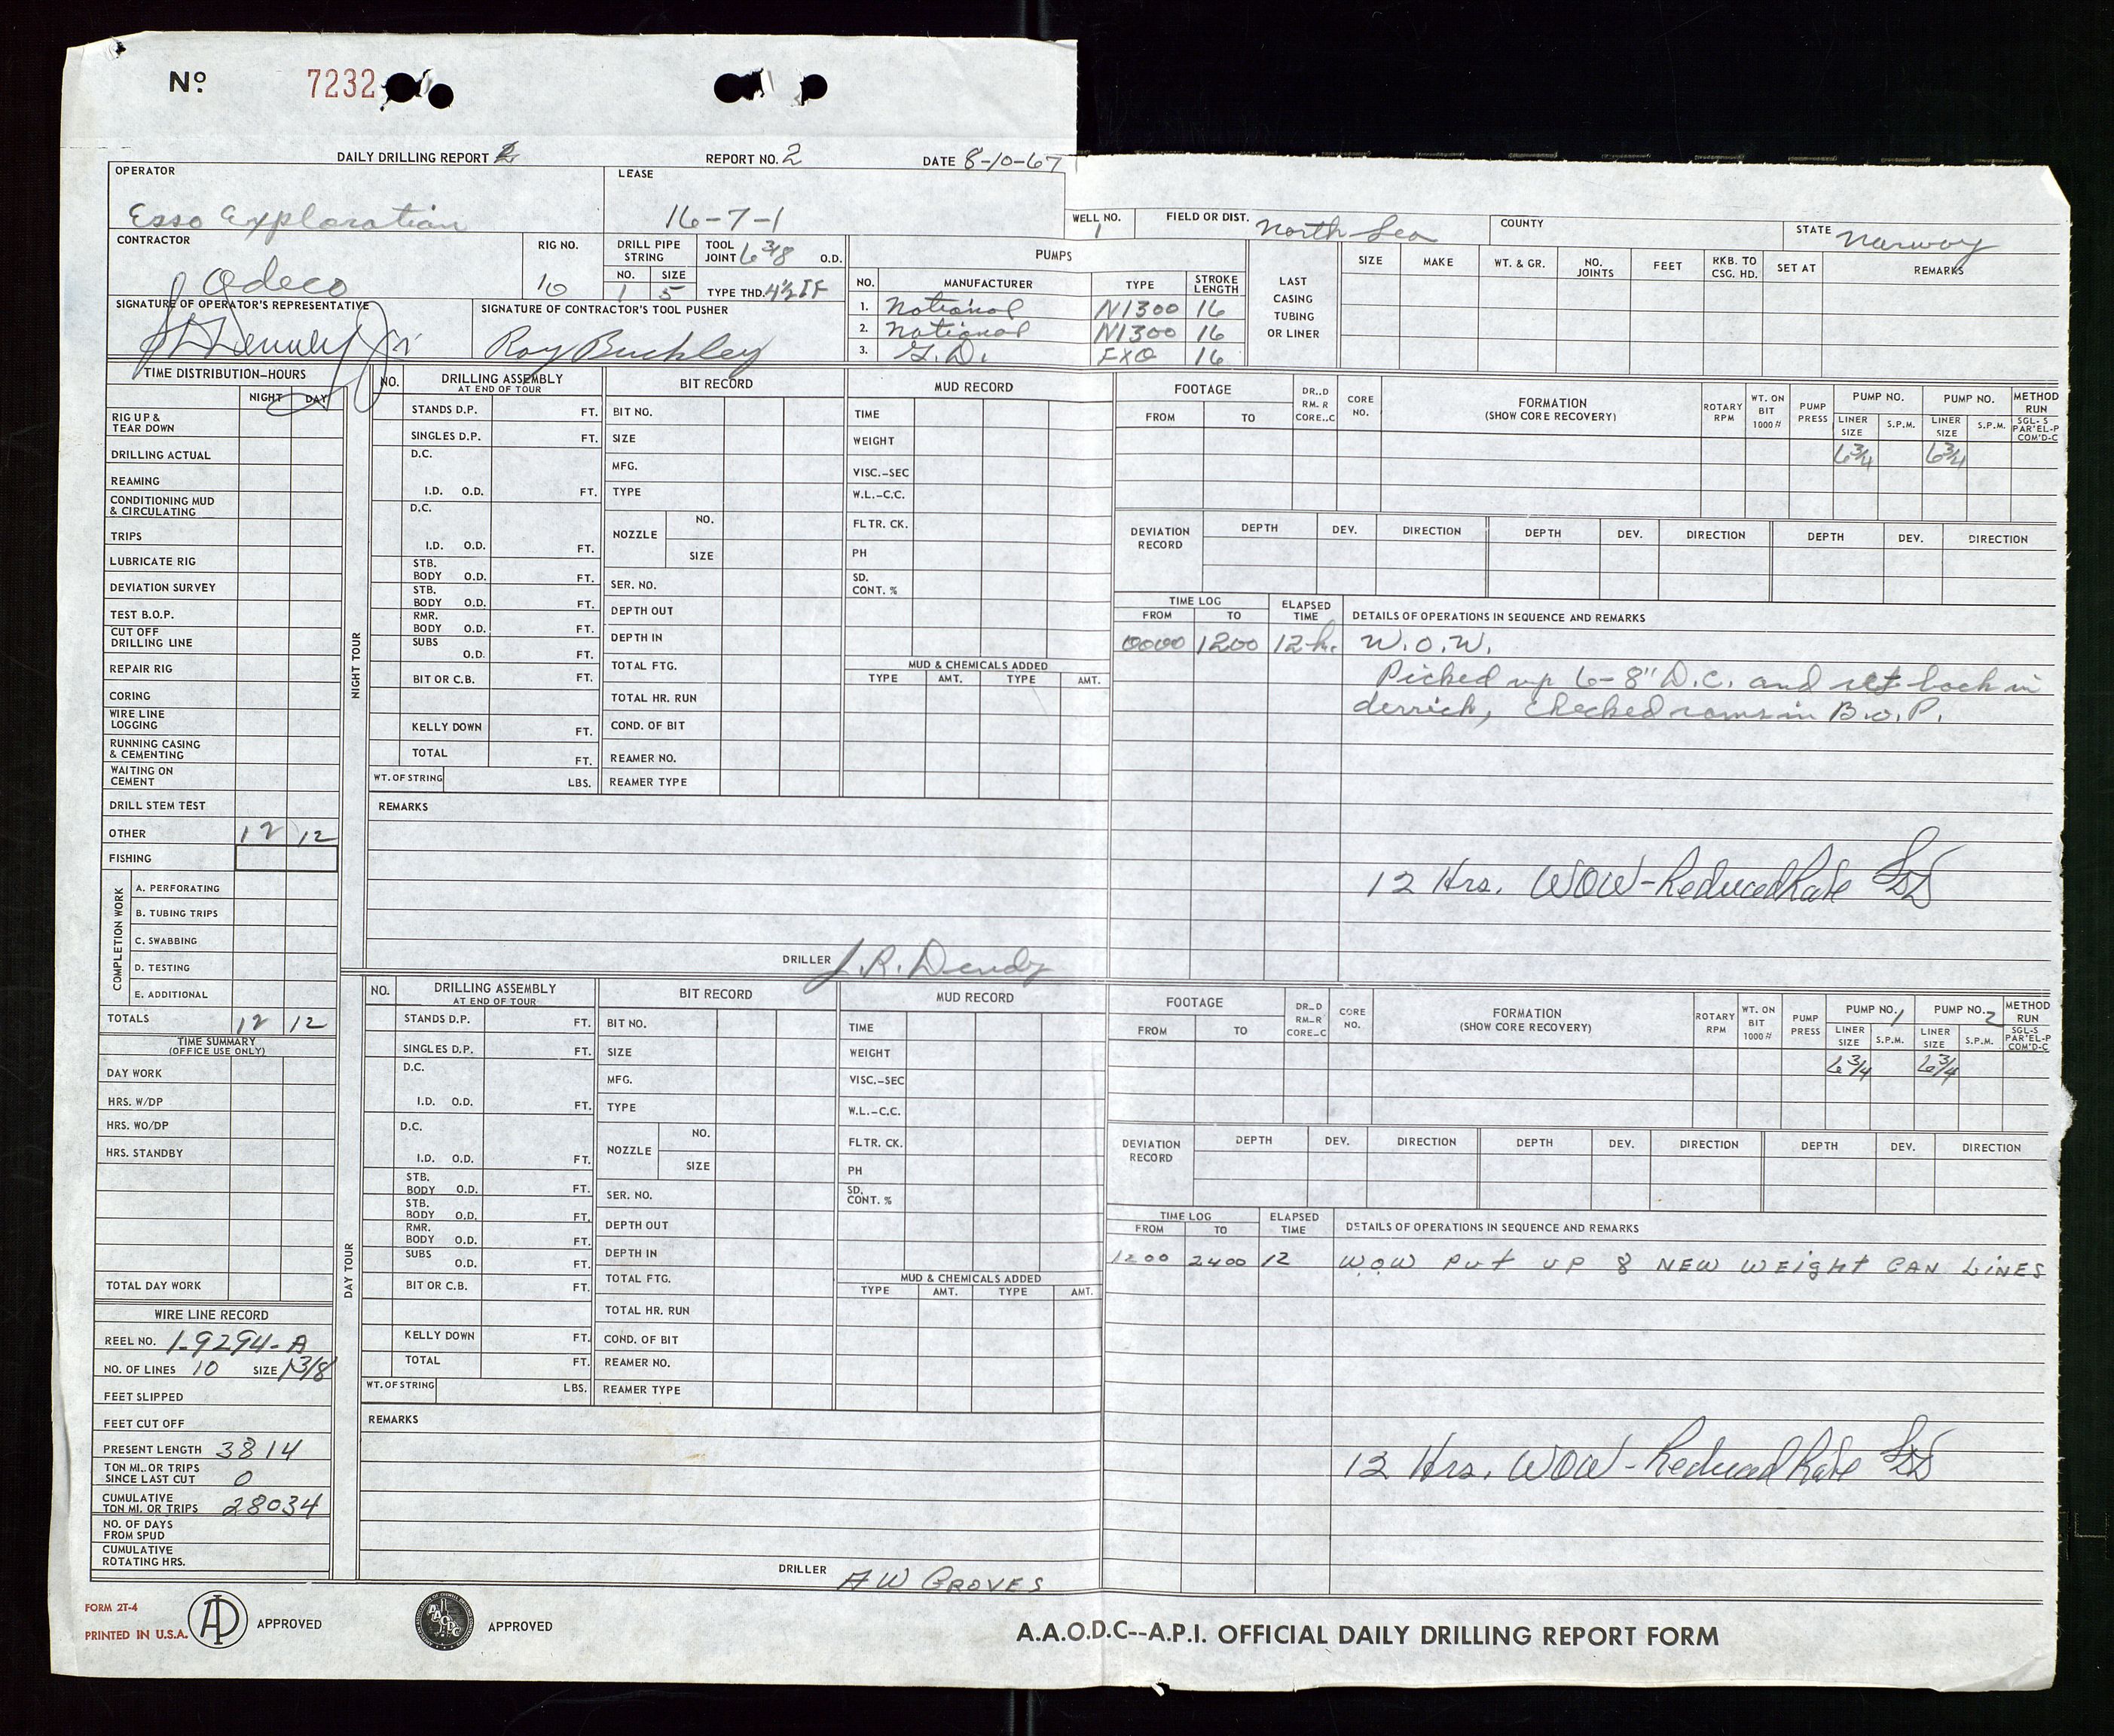 Nº 7232
DAILY DRILLING REPORT REPORT NO. 2 DATE 8-10-67
OPERATOR LEASE
Esso Exploration 16-7-1
WELL NO. 1 FIELD OR DIST. North Sea COUNTY STATE Norway
CONTRACTOR RIG NO. DRILL PIPE STRING TOOL JOINT 6 3/8 O.D. PUMPS
Odeco 10 NO. SIZE 1 5 TYPE THD. 4½ IF
NO. MANUFACTURER TYPE STROKE LENGTH
1. National N1300 16
2. National N1300 16
3. G.D. FXO 16
LAST CASING TUBING OR LINER SIZE MAKE WT. & GR. NO. JOINTS FEET RKB. TO CSG. HD. SET AT REMARKS
SIGNATURE OF OPERATOR'S REPRESENTATIVE SIGNATURE OF CONTRACTOR'S TOOL PUSHER
Roy Buckley
TIME DISTRIBUTION-HOURS
NIGHT DAY
RIG UP & TEAR DOWN
DRILLING ACTUAL
REAMING
CONDITIONING MUD & CIRCULATING
TRIPS
LUBRICATE RIG
DEVIATION SURVEY
TEST B.O.P.
CUT OFF DRILLING LINE
REPAIR RIG
CORING
WIRE LINE LOGGING
RUNNING CASING & CEMENTING
WAITING ON CEMENT
DRILL STEM TEST
OTHER 12 12
FISHING
COMPLETION WORK
A. PERFORATING
B. TUBING TRIPS
C. SWABBING
D. TESTING
E. ADDITIONAL
TOTALS 12 12
TIME SUMMARY
(OFFICE USE ONLY)
DAY WORK
HRS. W/DP
HRS. WO/DP
HRS. STANDBY
TOTAL DAY WORK
WIRE LINE RECORD
REEL NO. 1-9294-A
NO. OF LINES 10 SIZE 1 3/8
FEET SLIPPED
FEET CUT OFF
PRESENT LENGTH 3814
TON MI. OR TRIPS SINCE LAST CUT 0
CUMULATIVE TON MI. OR TRIPS 28034
NO. OF DAYS FROM SPUD
CUMULATIVE ROTATING HRS.
NIGHT TOUR
NO. DRILLING ASSEMBLY
AT END OF TOUR
STANDS D.P. FT.
SINGLES D.P. FT.
D.C.
I.D. O.D. FT.
D.C.
I.D. O.D. FT.
STB. BODY O.D. FT.
STB. BODY O.D. FT.
RMR. BODY O.D. FT.
SUBS O.D. FT.
BIT OR C.B. FT.
KELLY DOWN FT.
TOTAL FT.
WT. OF STRING LBS.
BIT RECORD
BIT NO.
SIZE
MFG.
TYPE
NOZZLE NO.
SIZE
SER. NO.
DEPTH OUT
DEPTH IN
TOTAL FTG.
TOTAL HR. RUN
COND. OF BIT
REAMER NO.
REAMER TYPE
MUD RECORD
TIME
WEIGHT
VISC.-SEC
W.L.-C.C.
FLTR. CK.
PH
SD. CONT. %
MUD & CHEMICALS ADDED
TYPE AMT. TYPE AMT.
REMARKS
DRILLER J.R. Dendy
FOOTAGE FROM TO DR..D RM. R CORE..C CORE NO. FORMATION (SHOW CORE RECOVERY) ROTARY RPM WT. ON BIT 1000# PUMP PRESS PUMP NO. LINER SIZE S.P.M. PUMP NO. LINER SIZE S.P.M. METHOD RUN SGL-S PAR'EL-P COM'D-C
6¾ 6¾
DEVIATION RECORD DEPTH DEV. DIRECTION DEPTH DEV. DIRECTION DEPTH DEV. DIRECTION
TIME LOG FROM TO ELAPSED TIME DETAILS OF OPERATIONS IN SEQUENCE AND REMARKS
0000 1200 12 hr. W.O.W.
Picked up 6-8" D.C. and set back in
derrick, checked rams in B.O.P.
12 Hrs. WOW-Reduced Rate
DAY TOUR
NO. DRILLING ASSEMBLY
AT END OF TOUR
STANDS D.P. FT.
SINGLES D.P. FT.
D.C.
I.D. O.D. FT.
D.C.
I.D. O.D. FT.
STB. BODY O.D. FT.
STB. BODY O.D. FT.
RMR. BODY O.D. FT.
SUBS O.D. FT.
BIT OR C.B. FT.
KELLY DOWN FT.
TOTAL FT.
WT. OF STRING LBS.
BIT RECORD
BIT NO.
SIZE
MFG.
TYPE
NOZZLE NO.
SIZE
SER. NO.
DEPTH OUT
DEPTH IN
TOTAL FTG.
TOTAL HR. RUN
COND. OF BIT
REAMER NO.
REAMER TYPE
MUD RECORD
TIME
WEIGHT
VISC.-SEC
W.L.-C.C.
FLTR. CK.
PH
SD. CONT. %
MUD & CHEMICALS ADDED
TYPE AMT. TYPE AMT.
REMARKS
DRILLER AW GROVES
FOOTAGE FROM TO DR...D RM...R CORE...C CORE NO. FORMATION (SHOW CORE RECOVERY) ROTARY RPM WT. ON BIT 1000# PUMP PRESS PUMP NO. 1 LINER SIZE S.P.M. PUMP NO. 2 LINER SIZE S.P.M. METHOD RUN SGL-S PAR'EL-P COM'D-C
6¾ 6¾
DEVIATION RECORD DEPTH DEV. DIRECTION DEPTH DEV. DIRECTION DEPTH DEV. DIRECTION
TIME LOG FROM TO ELAPSED TIME DETAILS OF OPERATIONS IN SEQUENCE AND REMARKS
1200 2400 12 WOW Put up 8 NEW WEIGHT CAN LINES
12 Hrs. WOW-Reduced Rate
FORM 2T-4
PRINTED IN U.S.A. APPROVED APPROVED
A.A.O.D.C--A.P.I. OFFICIAL DAILY DRILLING REPORT FORM